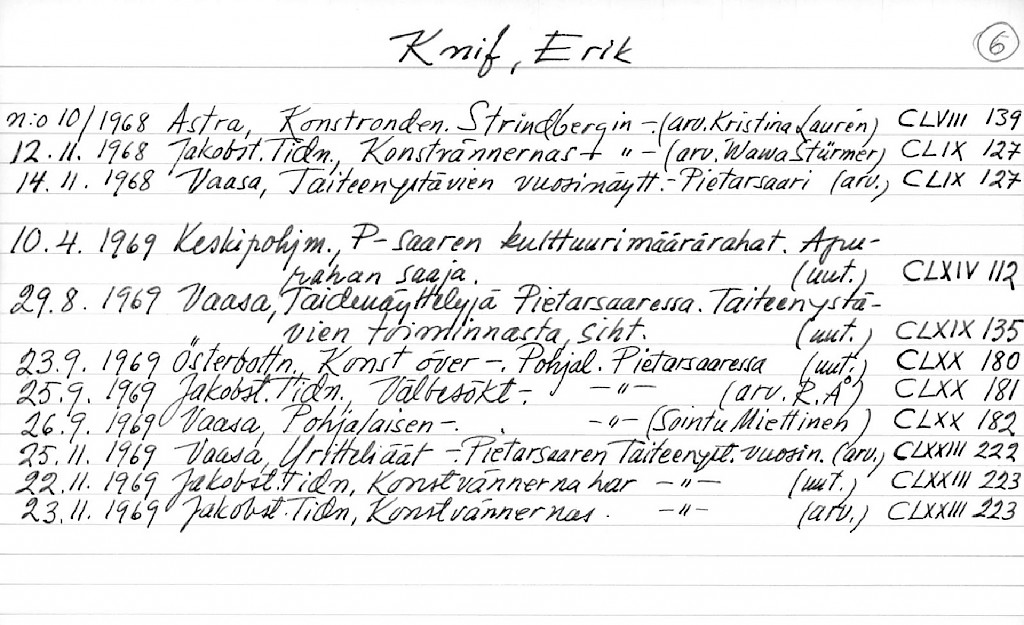 Knif, Erik
6
n:o 10/1968 Astra, Konstronden. Strindbergin -. (arv. Kristina Laurén) CLVIII 139
12.11.1968 Jakobst. Tidn., Konstvännernas - " - (arv. Wawa Stürmer) CLIX 127
14.11.1968 Vaasa, Taiteenystävien vuosinäytt. - Pietarsaari (arv.) CLIX 127
10.4.1969 Keskipohjm., P-saaren kulttuurimäärärahat. Apu-
rahan saaja. (uut.) CLXIV 112
29.8.1969 Vaasa, Taidenäyttelyjä Pietarsaaressa. Taiteenystä-
vien toiminnasta, siht. (uut.) CLXIX 135
23.9.1969 Österbottn., Konst över -. Pohjal. Pietarsaaressa (uut.) CLXX 180
25.9.1969 Jakobst. Tidn., Välbesökt -. - " - (arv. R.Å) CLXX 181
26.9.1969 Vaasa, Pohjalaisen -. - " - (Sointu Miettinen) CLXX 182
25.11.1969 Vaasa, Yritteliäät - Pietarsaaren Taiteenyst. vuosin. (arv.) CLXXIII 222
22.11.1969 Jakobst. Tidn, Konstvännerna har - " - (uut.) CLXXIII 223
23.11.1969 Jakobst. Tidn, Konstvännernas. - " - (arv.) CLXXIII 223